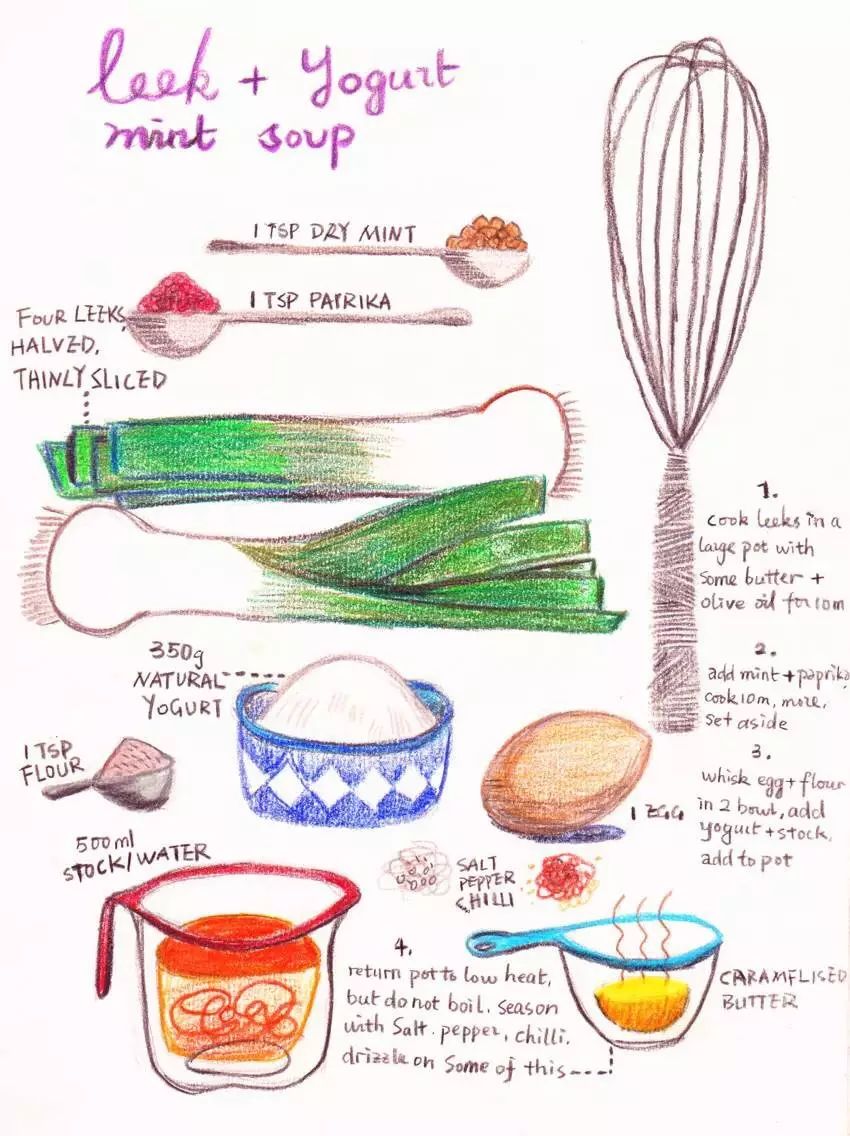 leek + Yogurt
mint soup
1 TSP DRY MINT
1 TSP PAPRIKA
FOUR LEEKS,
HALVED,
THINLY SLICED
1.
cook leeks in a
large pot with
some butter +
olive oil for 10m
2.
add mint + paprika
cook 10m, more,
set aside
3.
whisk egg + flour
in 2 bowl, add
yogurt + stock,
add to pot
350g
NATURAL
YOGURT
1 TSP
FLOUR
1 EGG
500ml
STOCK/WATER
SALT
PEPPER
CHILLI
4.
return pot to low heat,
but do not boil. season
with salt. pepper, chilli.
drizzle on some of this
CARAMELISED
BUTTER